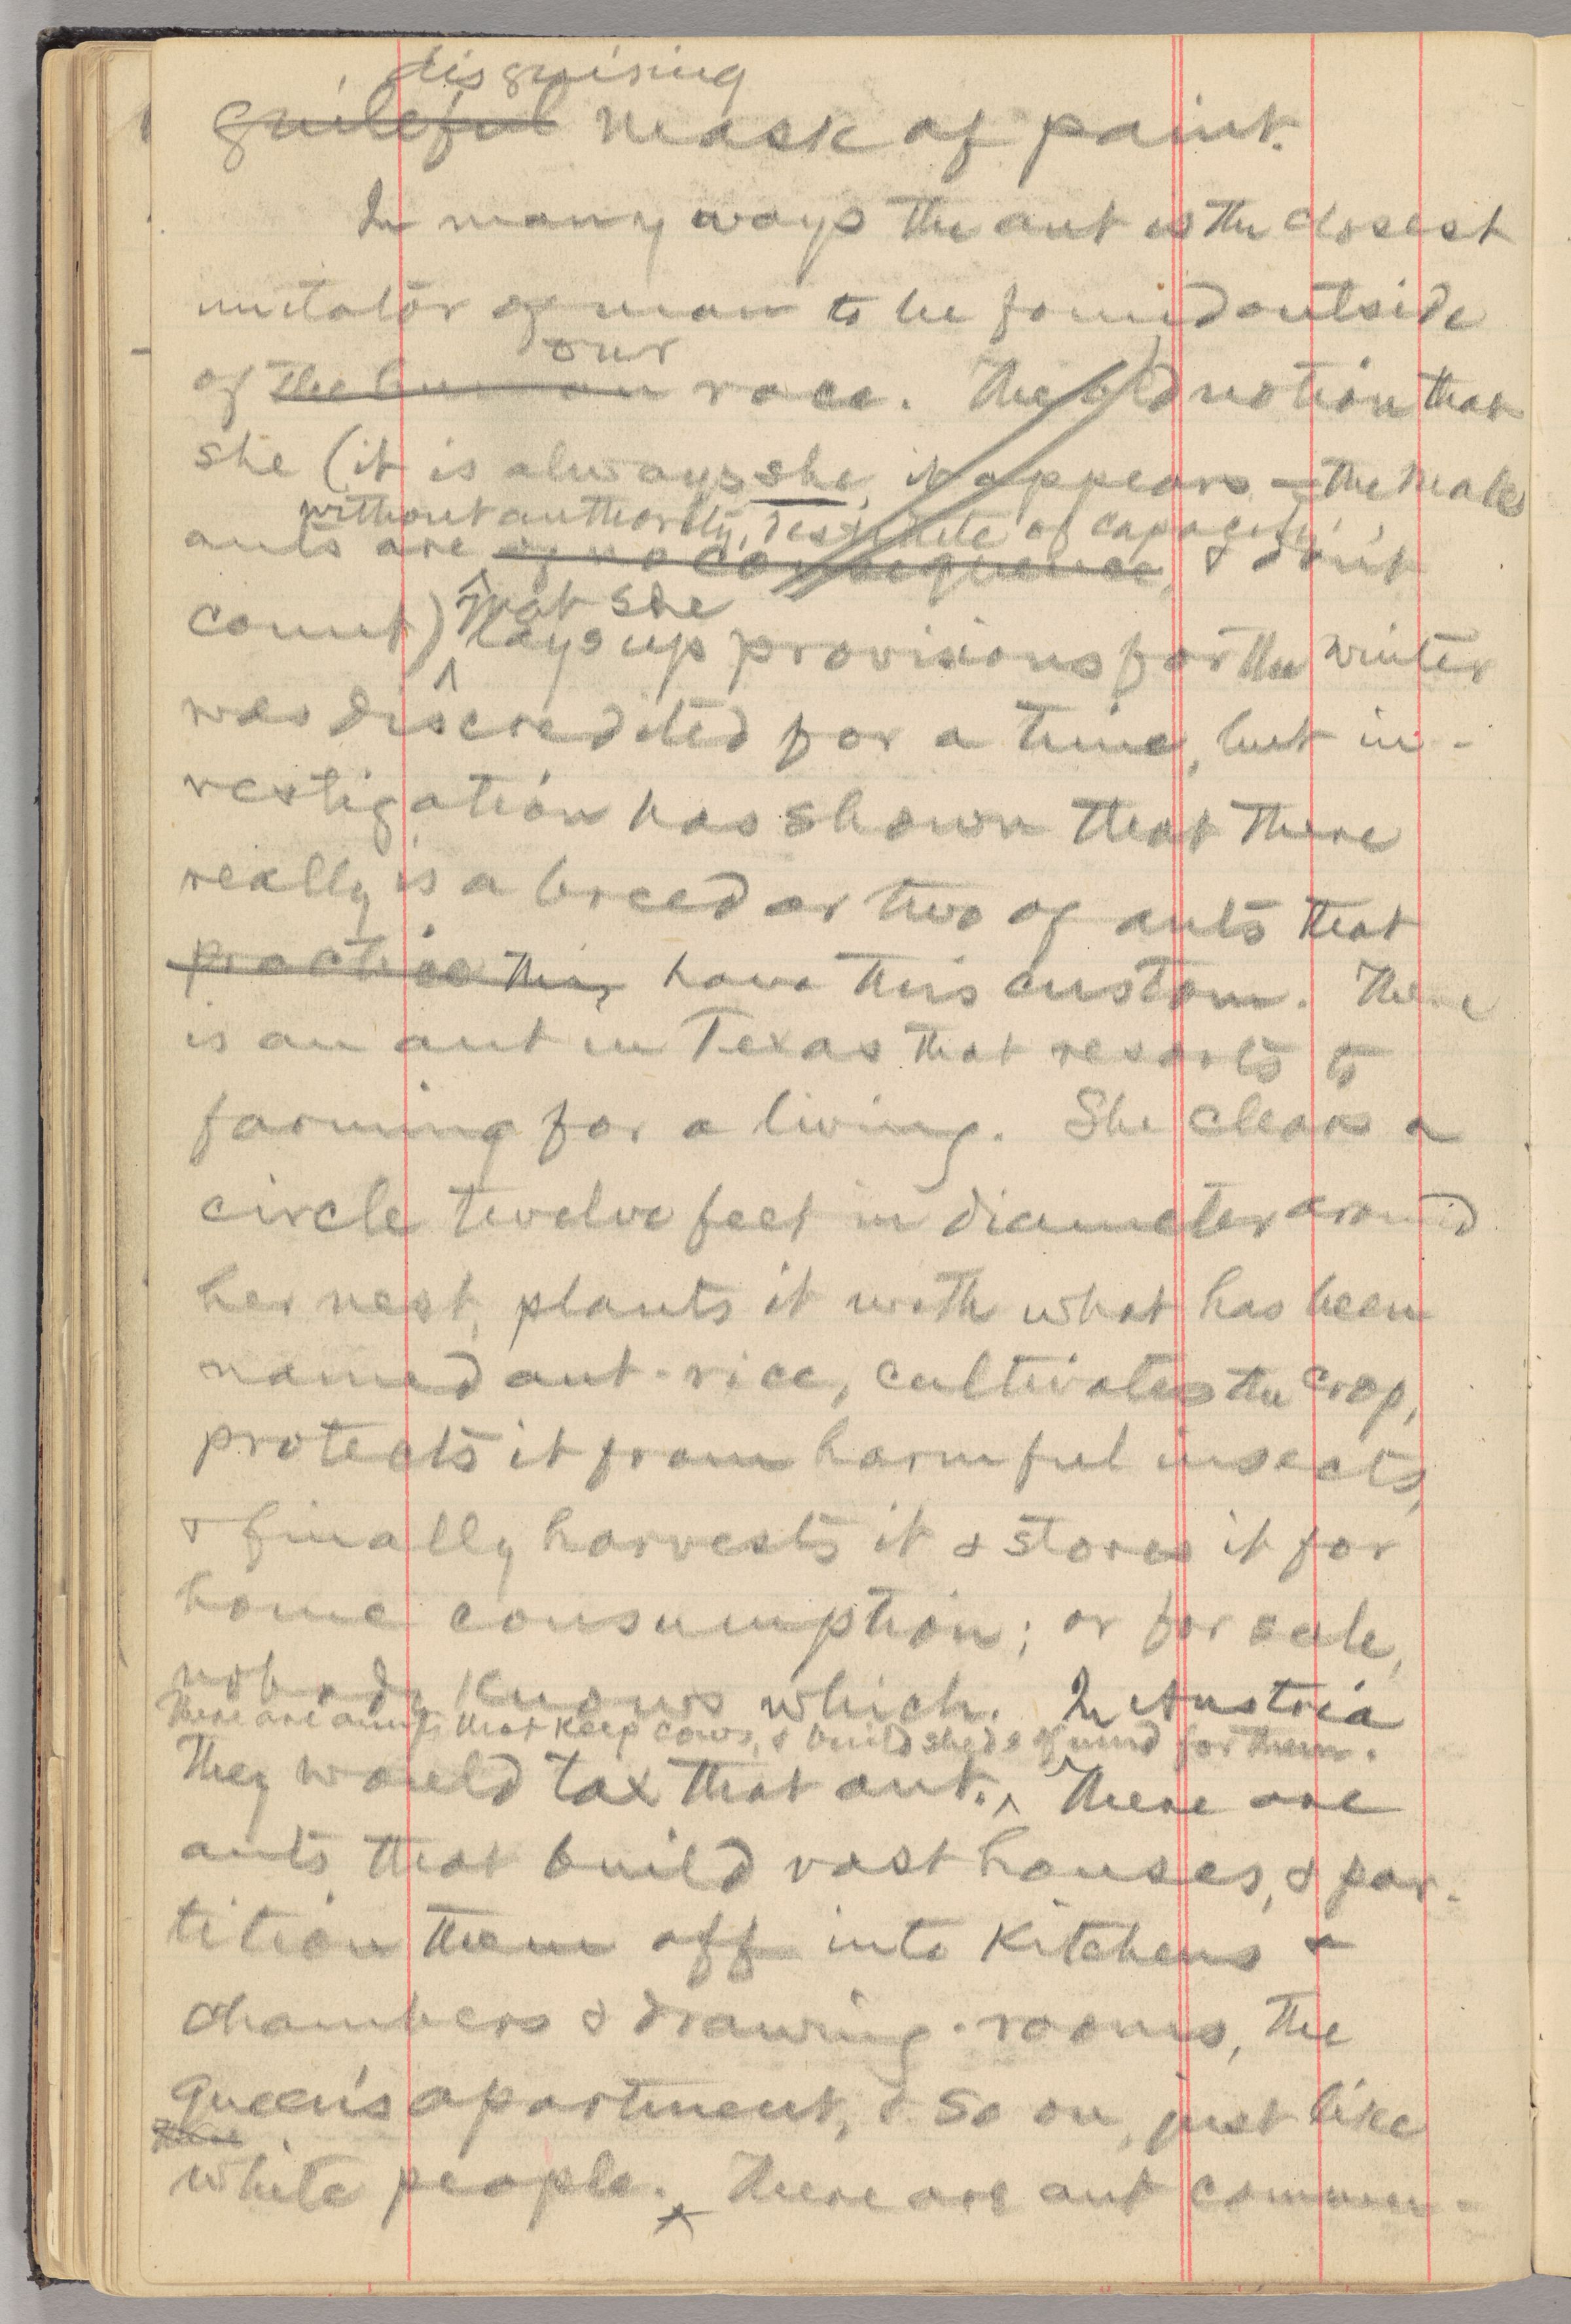 disguising
guileful mask of paint.
In many ways the ant is the closest
imitator of man to be found outside
our
of the human race. The old notion that
she (it is always she, it appears — the male
without authority, destitute of capacity,
ants are of no consequence, & don't
that she
count) lays up provisions for the winter
was discredited for a time, but in-
vestigation has shown that there
really is a breed or two of ants that
practice this, have this custom. There
is an ant in Texas that resorts to
farming for a living. She clears a
circle twelve feet in diameter around
her nest, plants it with what has been
named ant-rice, cultivates the crop,
protects it from harmful insects,
& finally harvests it & stores it for
home consumption; or for sale,
nobody knows which. In Austria
There are ants that keep cows, & build sheds of mud for them.
they would tax that ant. There are
ants that build vast houses, & par-
tition them off into kitchens &
chambers & drawing-rooms, the
queen's apartment, & so on, just like
white people. There are ant commu-